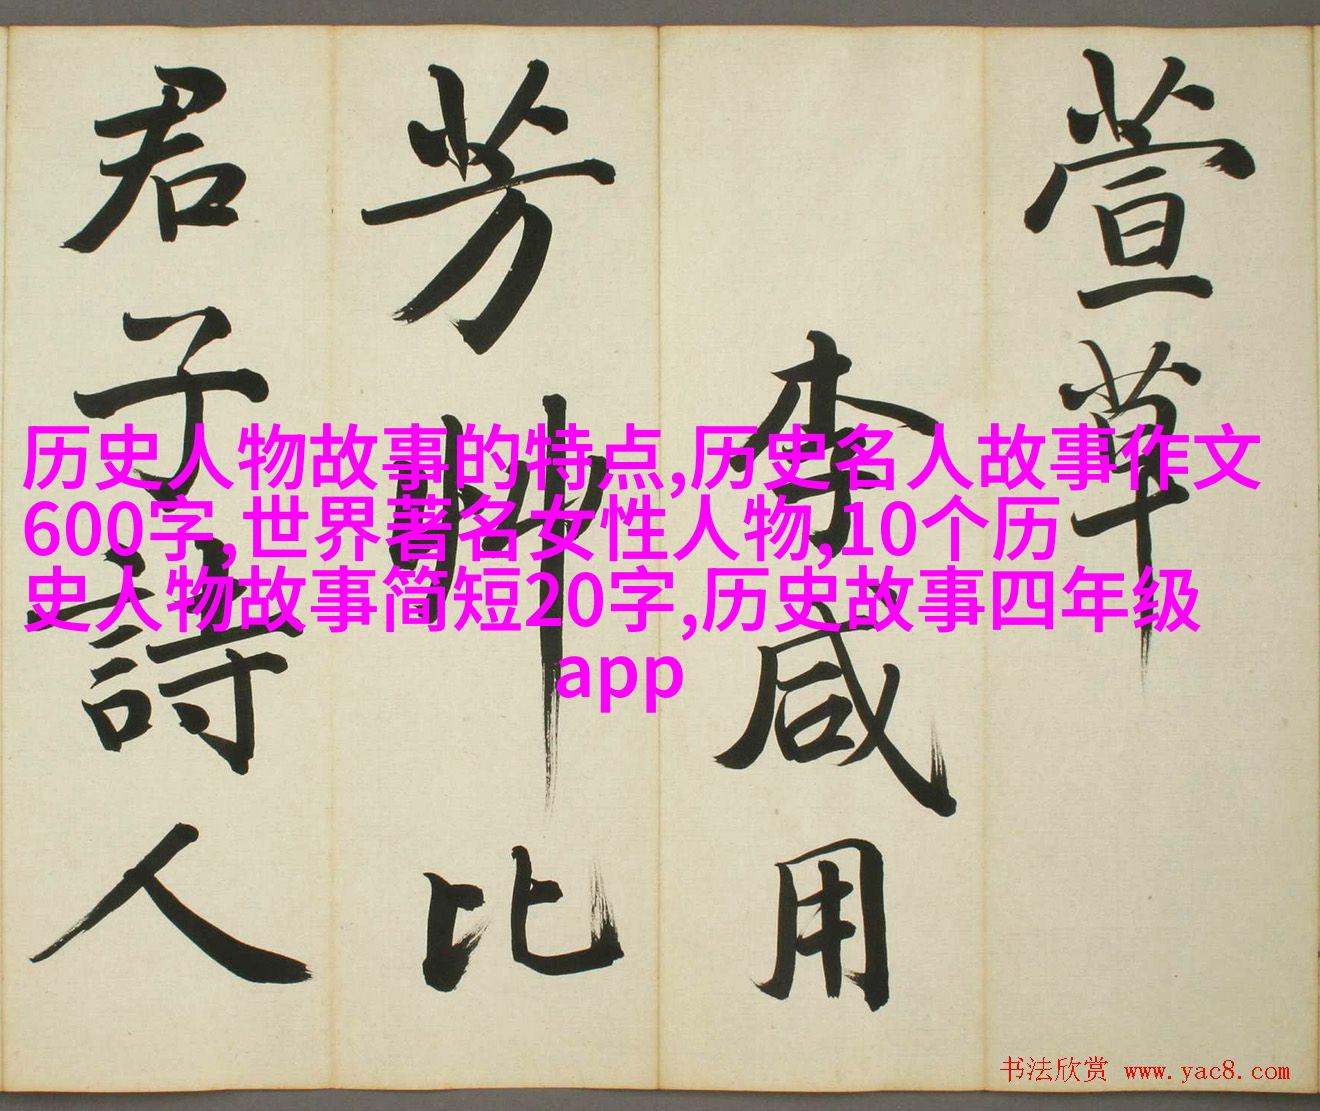 萱草
李咸用
芳草比
君子詩人
历史人物故事的特点,历史名人故事作文
600字,世界著名女性人物,10个历
史人物故事简短20字,历史故事四年级
app
书法欣赏 www.yac8.com